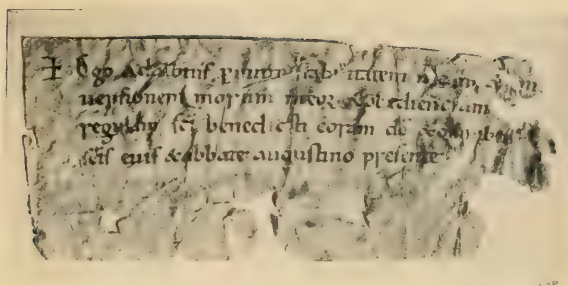 + Ego stabilitatem meam &
uersionem morum meor & obedientiam
regulam sci benedicti coram do & omnibus
scis eius & abbate augustino presente